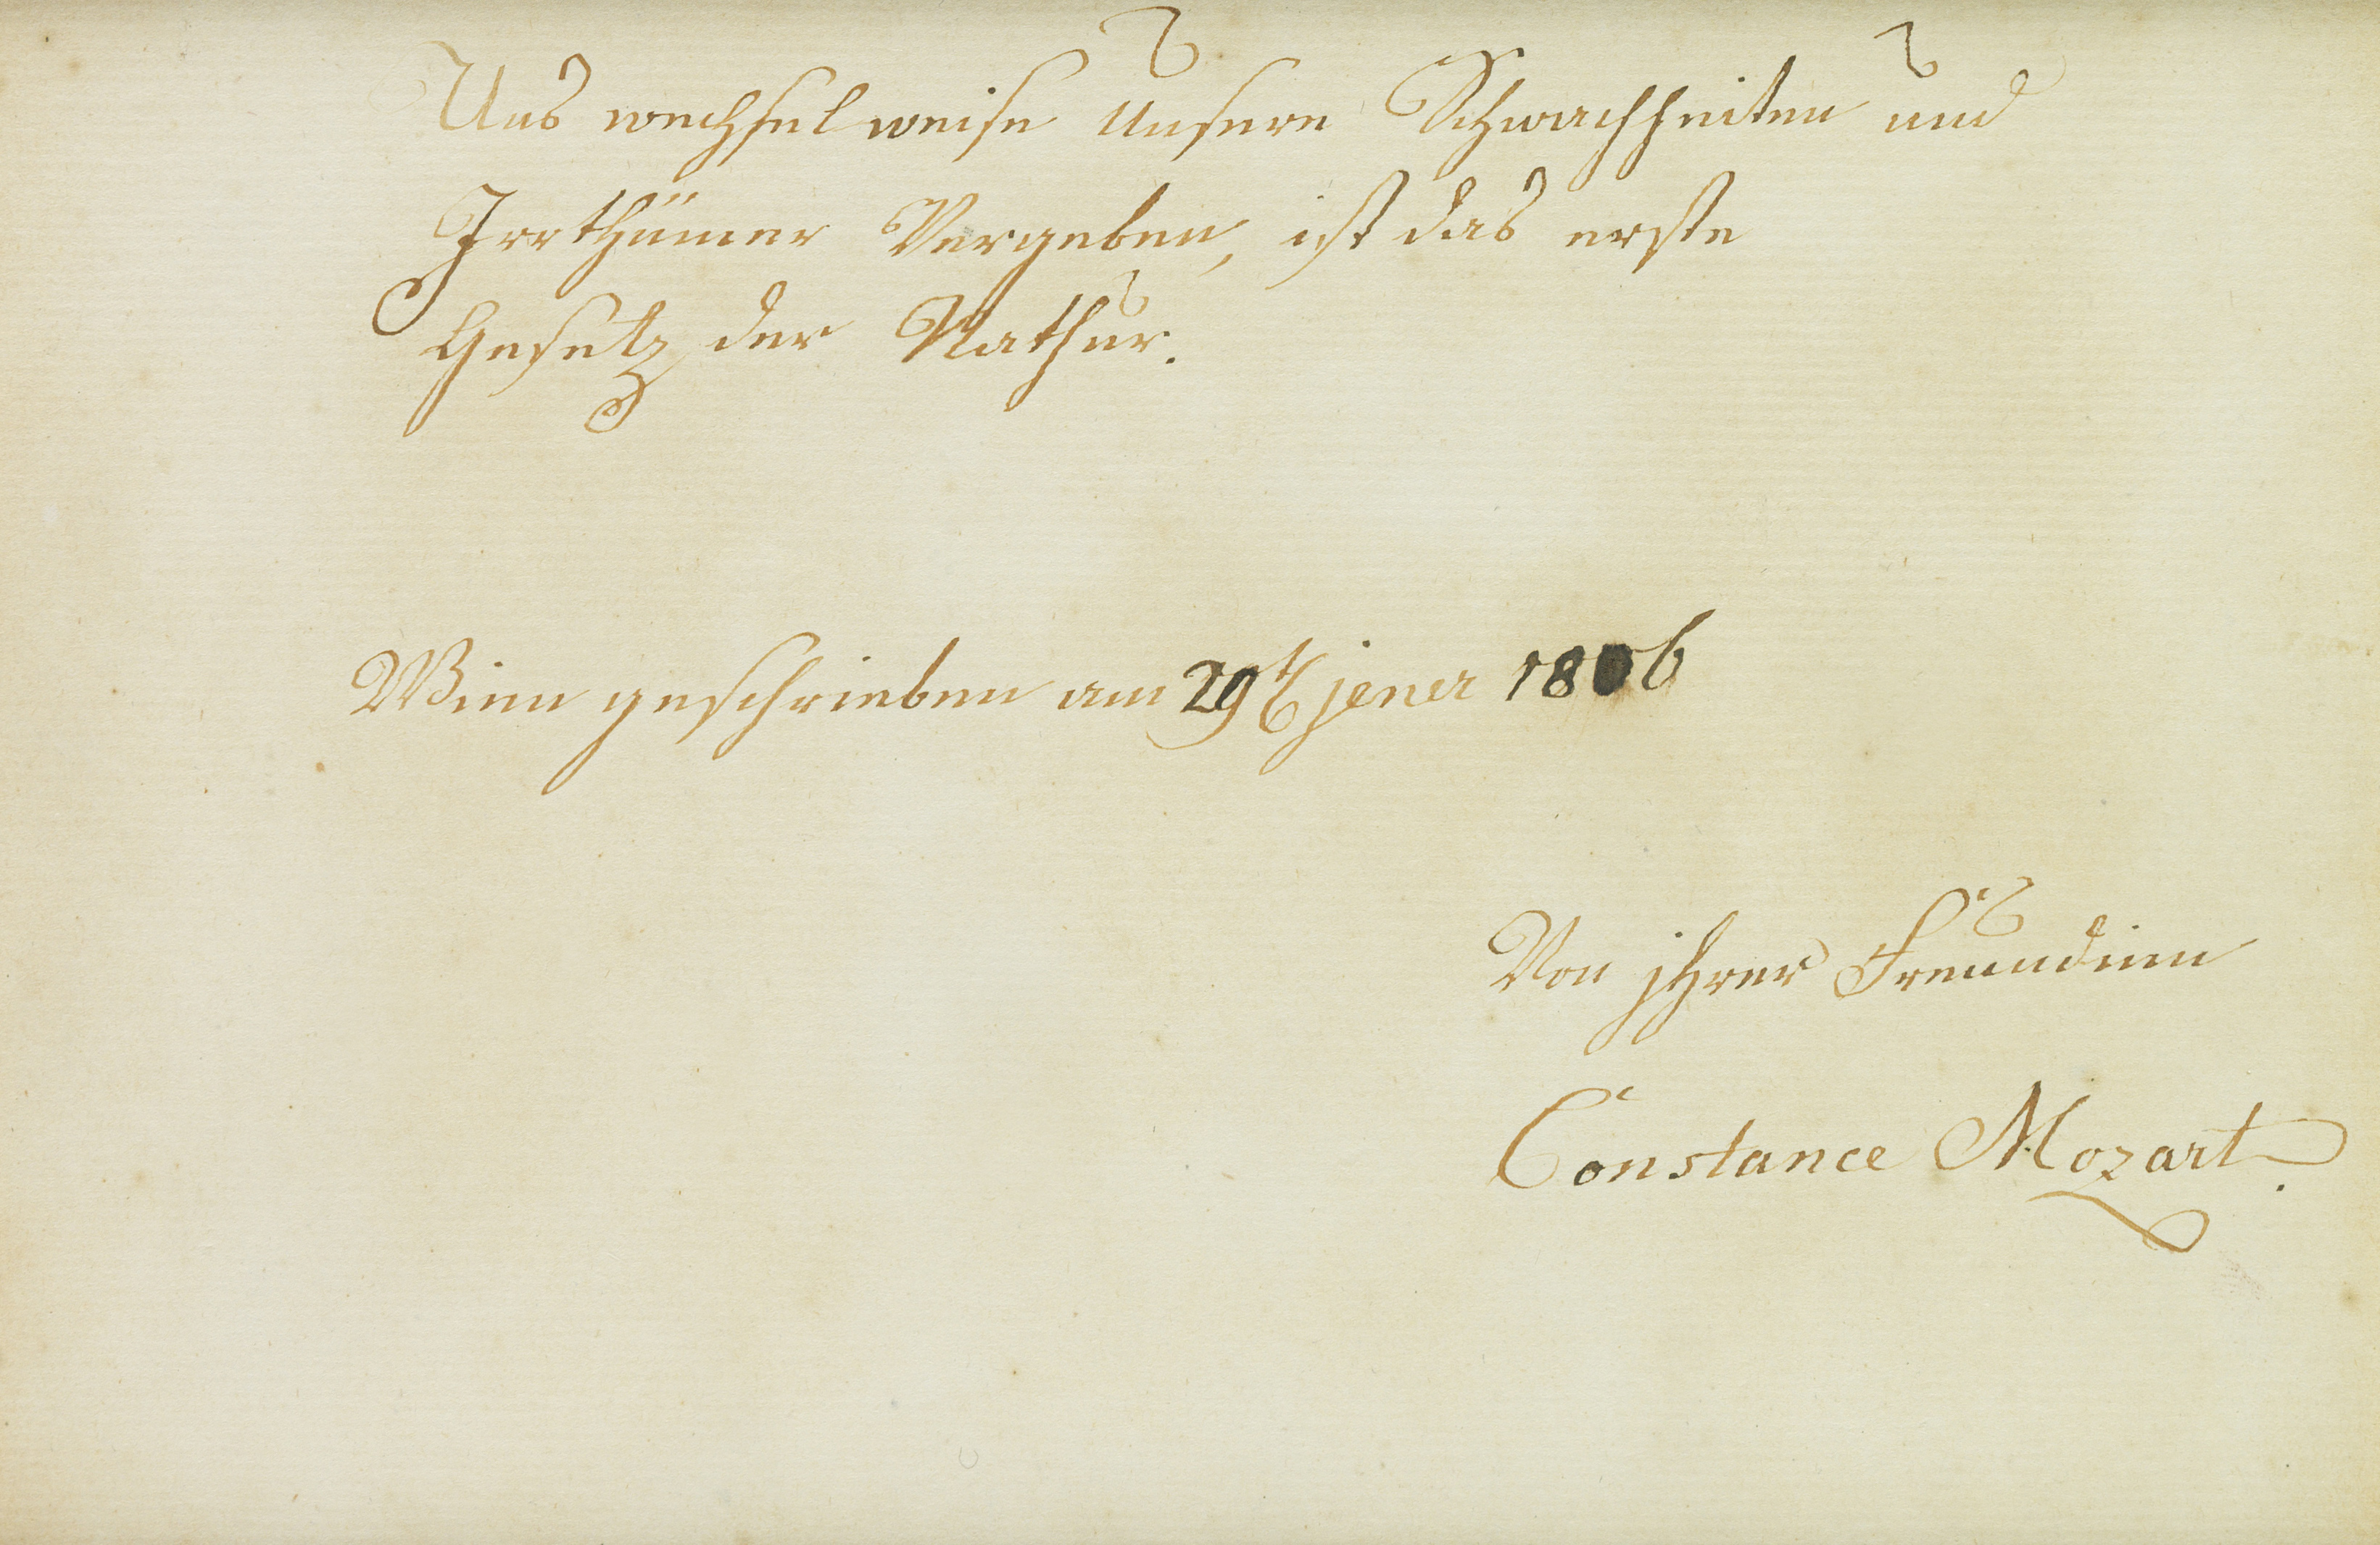 Uns wechselweise unsere Schwachheiten und
Irrthümer Vergeben, ist das erste
Gesetz der Nathur.
Wien geschrieben am 29t jener 1806
Von jhrer Freundinn
Constance Mozart.